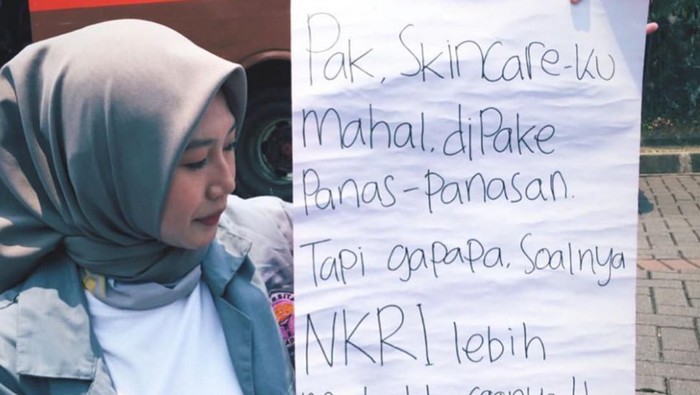 Pak, Skincare-ku
mahal. diPake
Panas-Panasan.
Tapi gapapa. Soalnya
NKRI lebih